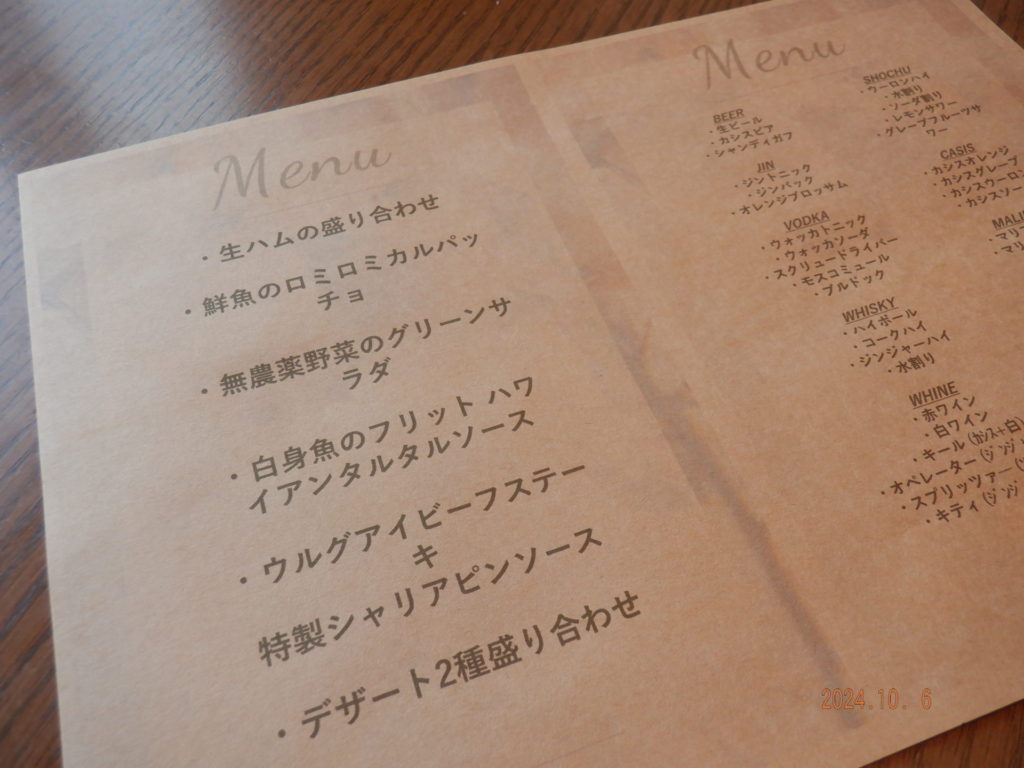 Menu
・生ハムの盛り合わせ
・鮮魚のロミロミカルパッ
チョ
・無農薬野菜のグリーンサ
ラダ
・白身魚のフリット ハワ
イアンタルタルソース
・ウルグアイビーフステー
キ
特製シャリアピンソース
・デザート2種盛り合わせ
Menu
BEER
・生ビール
・カシスビア
・シャンディガフ
JIN
・ジントニック
・ジンバック
・オレンジブロッサム
VODKA
・ウォッカトニック
・ウォッカソーダ
・スクリュードライバー
・モスコミュール
・ブルドック
WHISKY
・ハイボール
・コークハイ
・ジンジャーハイ
・水割り
WHINE
・赤ワイン
・白ワイン
・キール（カシス+白
・オペレーター（ジンジ
・スプリッツァー（
・キティ（ジンジ
SHOCHU
ウーロンハイ
・水割り
・ソーダ割り
・レモンサワー
・グレープフルーツサ
ワー
CASIS
・カシスオレンジ
・カシスグレープ
・カシスウーロン
・カシスソー
MALI
・マリ
・マリ
2024.10. 6